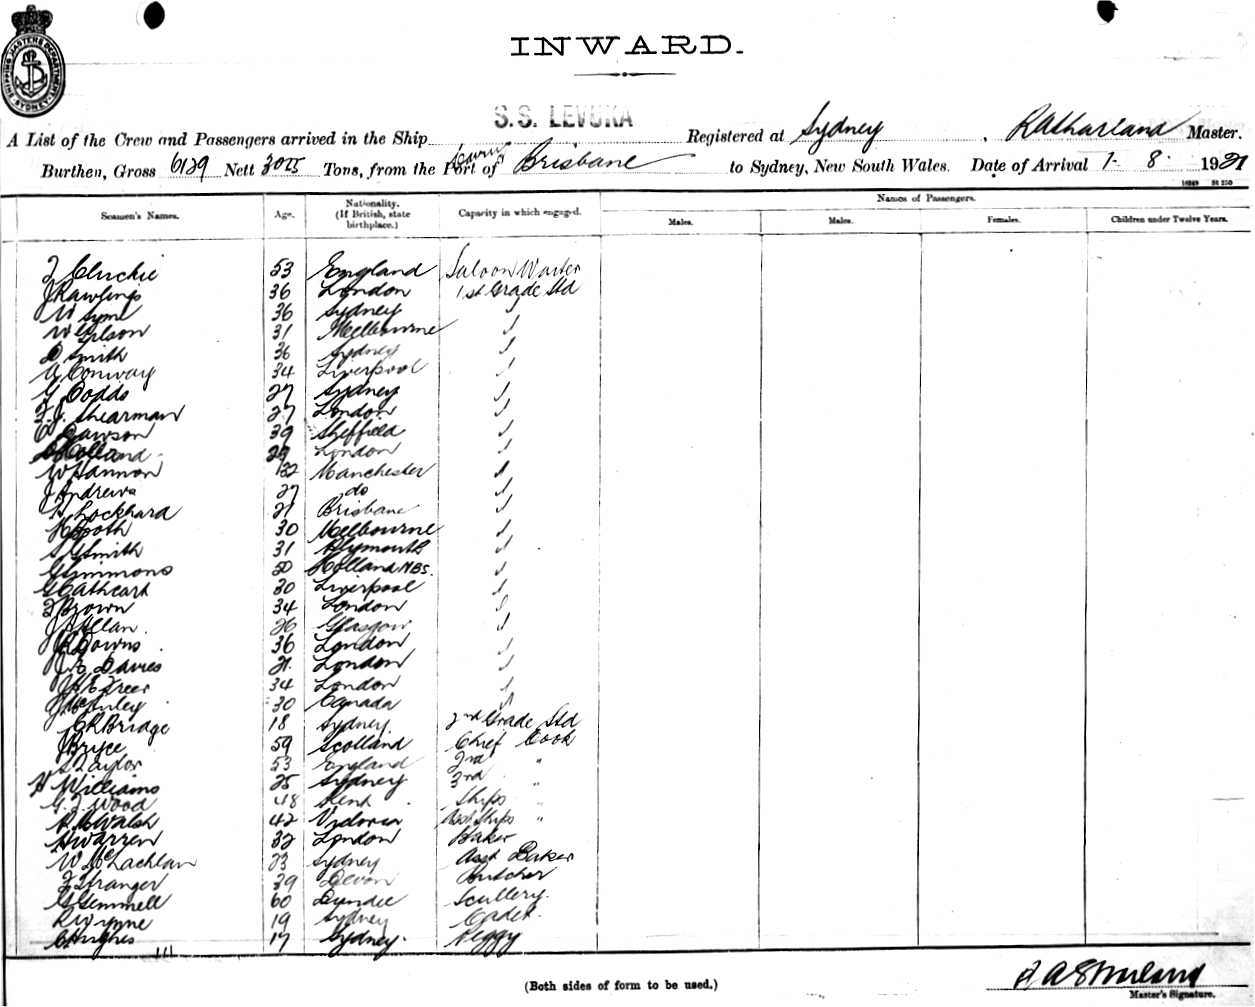 SHIPPING MASTERS DEPARTMENT SYDNEY
INWARD.
A List of the Crew and Passengers arrived in the Ship S.S. LEVUKA Registered at Sydney, Master.
Burthen, Gross 6129 Nett 3025 Tons, from the Port of Brisbane to Sydney, New South Wales. Date of Arrival 1- 8. 1921
Seamen's Names. Age. Nationality. (If British, state birthplace.) Capacity in which engaged. Names of Passengers.
Males. Males. Females. Children under Twelve Years.
53 England Saloon Waiter
J Rawlings 36 London 1st Grade Std
W Syme 36 Sydney "
W Gilson 31 Melbourne "
D Smith 36 Sydney "
A Conway 34 Liverpool "
G Dodds 27 Sydney "
F.J. Shearman 27 London "
C Dawson 39 Sheffield "
Holland 29 London "
W Hannon 32 Manchester "
J Andrews 27 do "
Lockhard 21 Brisbane "
H Booth 30 Melbourne "
S G Smith 31 Plymouth "
G Simmons 50 Holland NBS. "
G Cathcart 30 Liverpool "
F Brown 34 London "
J Allan. 26 Glasgow "
Downs. 36 London "
Davies 21. London "
Freer 34 London "
30 Canada "
C R Bridge 18 Sydney. 2nd Grade Std
J Bryce 59 Scotland Chief Cook
S Taylor 53 England 2nd "
H Williams 25 Sydney 3rd "
G. F. Wood 48 Kent. Ships "
Walsh 42 Victoria Asst Ships "
H Warren 32 London Baker
W McLachlan 23 Sydney Asst Baker
F Stranger 39 Devon Butcher
G Gemmell 60 Dundee Scullery.
R Wynne 19 Sydney Cadet.
C Hughes 17 Sydney. Peggy
(Both sides of form to be used.)
Master's Signature.